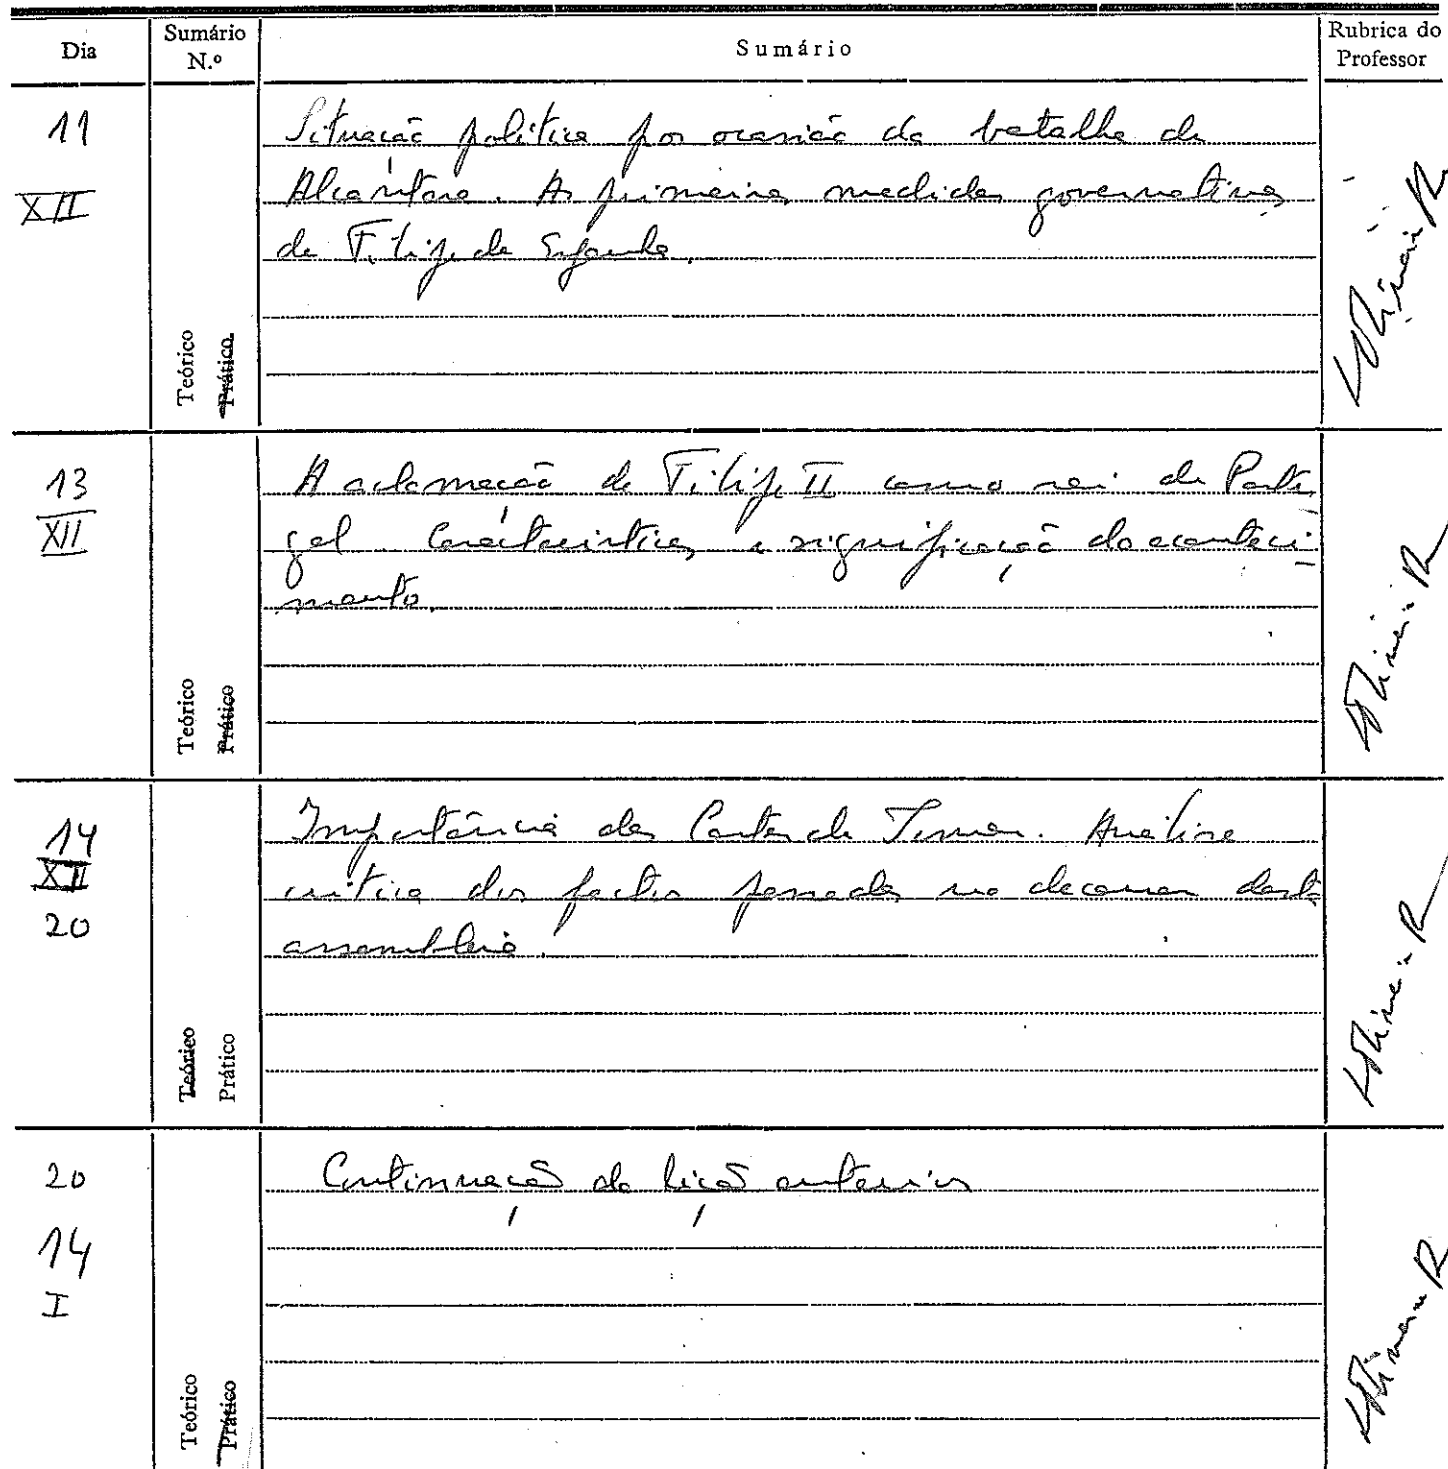 Dia
Sumário N.º
Sumário
Rubrica do Professor
11
XII
Situação política por ocasião da batalha de
Alcântara. As primeiras medidas governativas
de Filipe de Espanha.
Teórico
Prático
13
XII
A aclamação de Filipe II como rei de Portu
gal. Características e significação do aconteci-
mento.
Teórico
Prático
14
XII
20
Importância das Cortes de Tomar. Análise
crítica dos factos passados no decorrer desta
assembleia.
Teórico
Prático
20
14
I
Continuação da lição anterior
Teórico
Prático